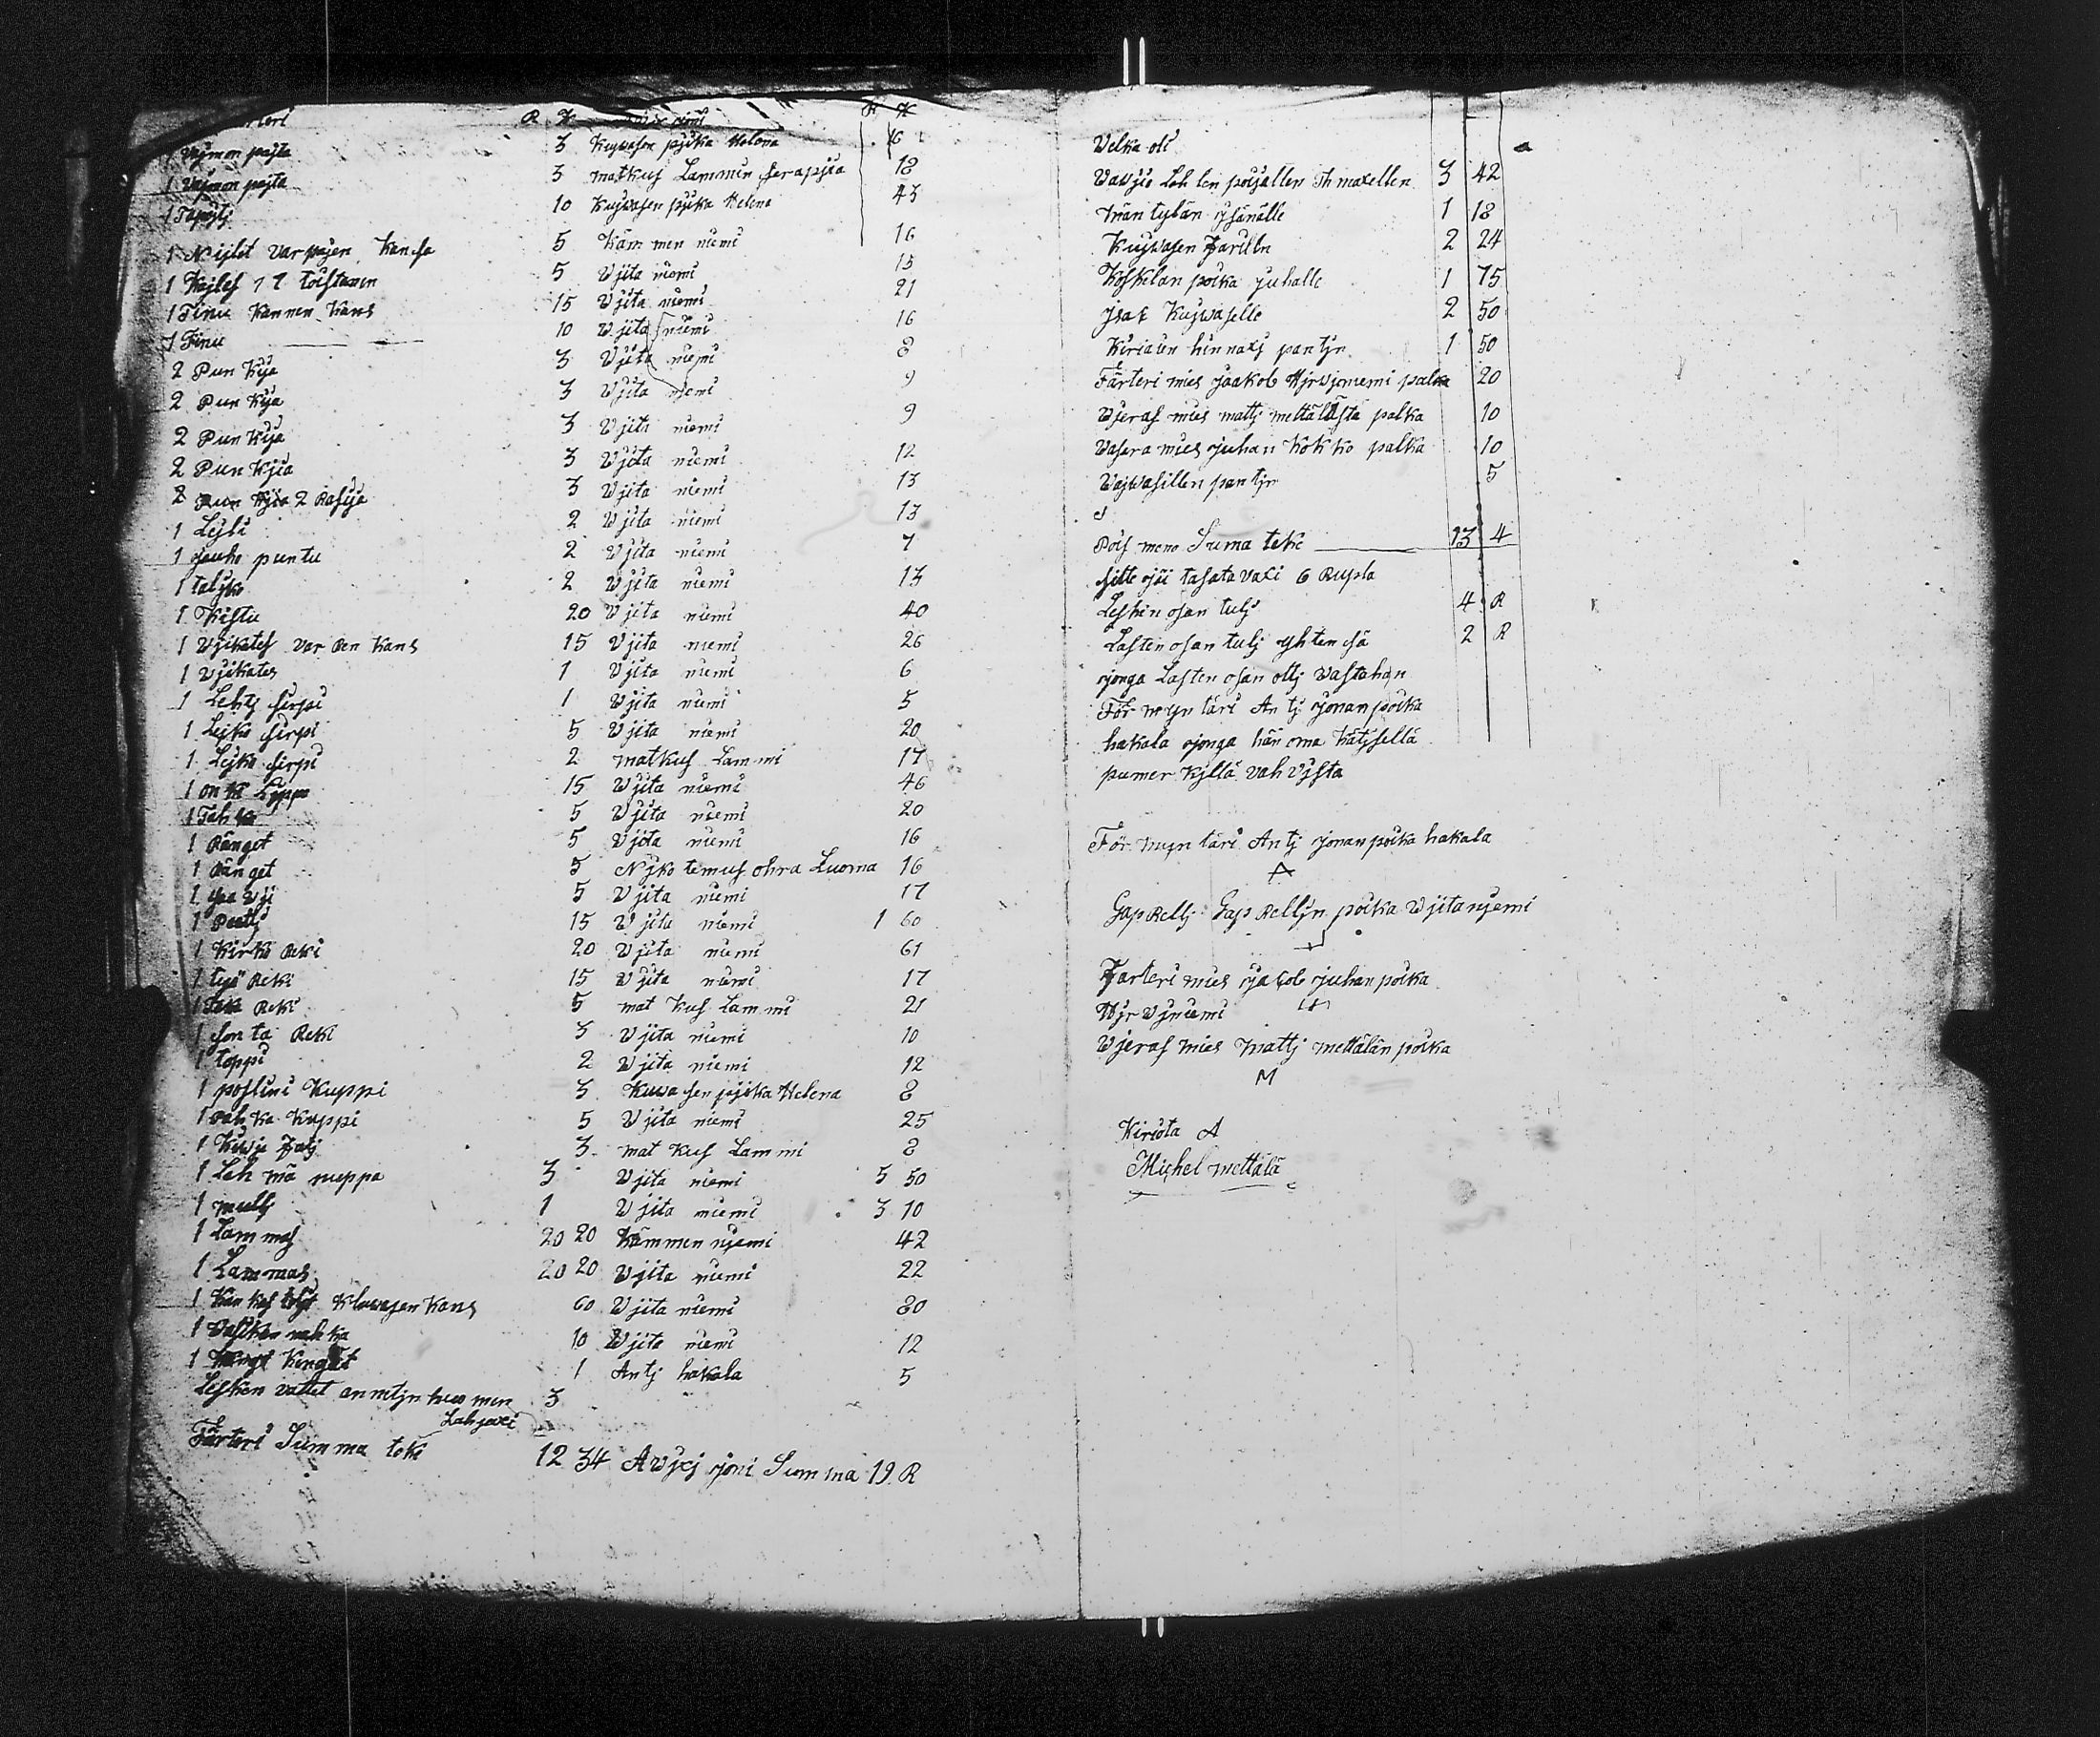 R K R K
1 Vajmon pajta 3 Kujwasen pjika Helena 16
1 Vajmon pajta 3 matkus Lammin serapjia 18
1 Tapujtj 10 Kujwasen pjika Helena 43
1 Nijlet varpajen kansa 5 Kämmen niemi 16
1 Kajles 1 1 toistanen 5 Vjita niemi 15
1 Tinu kannen kans 15 Vjita niemi 21
1 Tinu 10 Vjita niemi 16
2 Pun Kija 3 Vjita niemi 8
2 Pun Kija 3 Vjita niemi 9
2 Pun Kija 3 Vjita niemi 9
2 Pun Kjia 3 Vjita niemi 12
2 Pun Kjia 2 Rasija 3 Vjita niemi 13
1 Lejli 2 Vjita niemi 13
1 jauho puntu 2 Vjita niemi 7
1 taljko 2 Vjita niemi 13
1 Kistu 20 Vjita niemi 40
1 Vjikates var Ren kans 15 Vjita niemi 26
1 Vjikates 1 Vjita niemi 6
1 Lehtj sirpi 1 Vjita niemi 5
1 Lejko sirpi 5 Vjita niemi 20
1 Lejko sirpi 2 matkus Lammi 17
1 on ki Lippo 15 Vjita niemi 46
1 Tahko 5 Vjita niemi 20
1 Ränget 5 Vjita niemi 16
1 Ränget 5 Njko temus ohra Luoma 16
1 spa Vji 5 Vjita niemi 17
1 Paatj 15 Vjita niemi 1 60
1 Kirko Reki 20 Vjita niemi 61
1 tyjä Reki 15 Vjita niemi 17
1 Reki 5 mat kus Lammi 21
1 son ta Reki 3 Vjita niemi 10
1 toppi 2 Vjita niemi 12
1 poslini Kuppi 3 Kuwasen pjika Helena 8
1 vah ka Kuppi 5 Vjita niemi 25
1 Kiwju Fatj 3 mat kus Lammi 8
1 Leh mä nuppa 3 Vjita niemi 5 50
1 mullj 1 Vjita niemi 3 10
1 Lam mas 20 20 Kämmen njemi 42
1 Lammas 20 20 Vjita niemi 22
1 Kan kas tolyt Kluwasen kans 60 Vjita niemi 80
1 Vasikan nahka 10 Vjita niemi 12
1 Kengät 1 Antj hakala 5
Lesken vattet annetjn huo men 3
Lahjaxi
Färteri Summa teke 12 34 Avjxj sjoni Summa 19 R
Velka oli
Vavjio Leh len poijallen Th maxellen 3 42
män tylän jsänälle 1 18
Kujwasen Farillen 2 24
Koskelan poika juhalle 1 75
jsak Kujwaselle 2 50
Kiriaien hinnaxj pantjn 1 50
Färteri mies Jaakob Hjrvjniemi palka 20
Vjeras mies mattj mettälästä palka 10
Vasara mies Juhan Kokko palka 10
Vajwasillen pantjn 5
Pois meno Suma teke 13 4
sitte jäi tasata vaxi 6 Rupla
Lesken osan tulj 4 R
Lasten osan tulj yhten sä 2 R
jonga Lasten osan ottj vastahan
För myn täri An tj Jonan poika
hakala jonga hän oma kätjsellä
pumer kjllä vah vjsta
För myn täri Antj Jonan poika hakala
A
Gap Rellj Gap Relljn poika Vjitanjemi
Farteri mies Jacob Juhan poika
Hjr vjniemi
Vjeras mies Mattj mettälän poika
M
Kirjota A
Michel mettälä